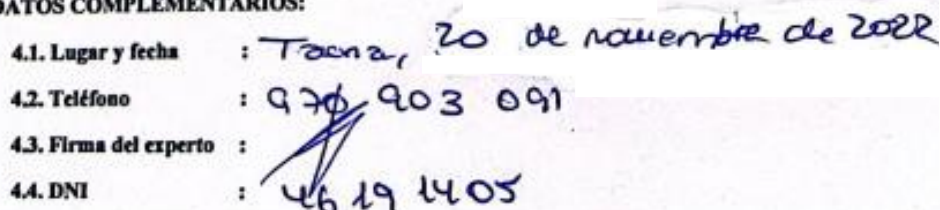 DATOS COMPLEMENTARIOS:
4.1. Lugar y fecha : Tacna, 20 de noviembre de 2022
4.2. Teléfono : 970 903 091
4.3. Firma del experto :
4.4. DNI : 46 19 1405